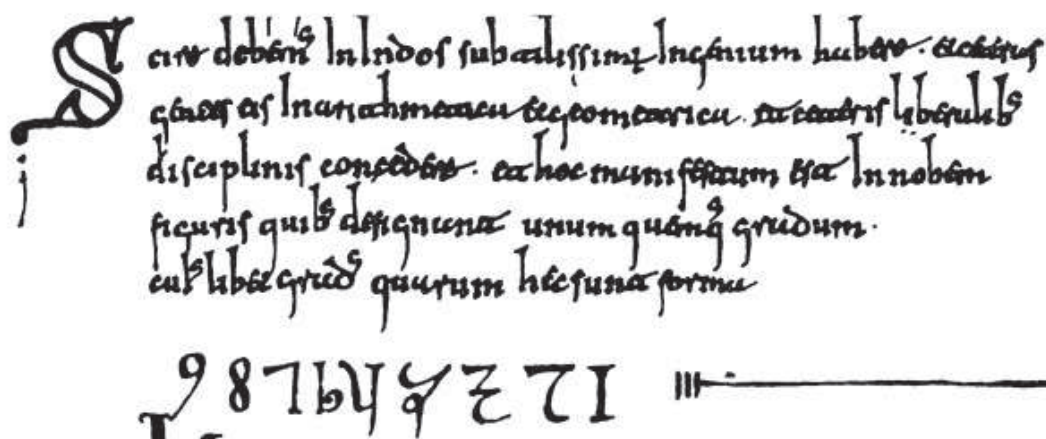 Scire debem' In Indos subtilissimum Ingenium habere. et ceteras
gentes eis In arithmetica et geometrica. et ceteris liberalib'
disciplinis concedere. et hoc manifestum est In nobem
figuris quib' designant unum quemq' gradum.
cui' libet grad' quarum hec sunt forma
9 8 7 6 5 4 3 2 1